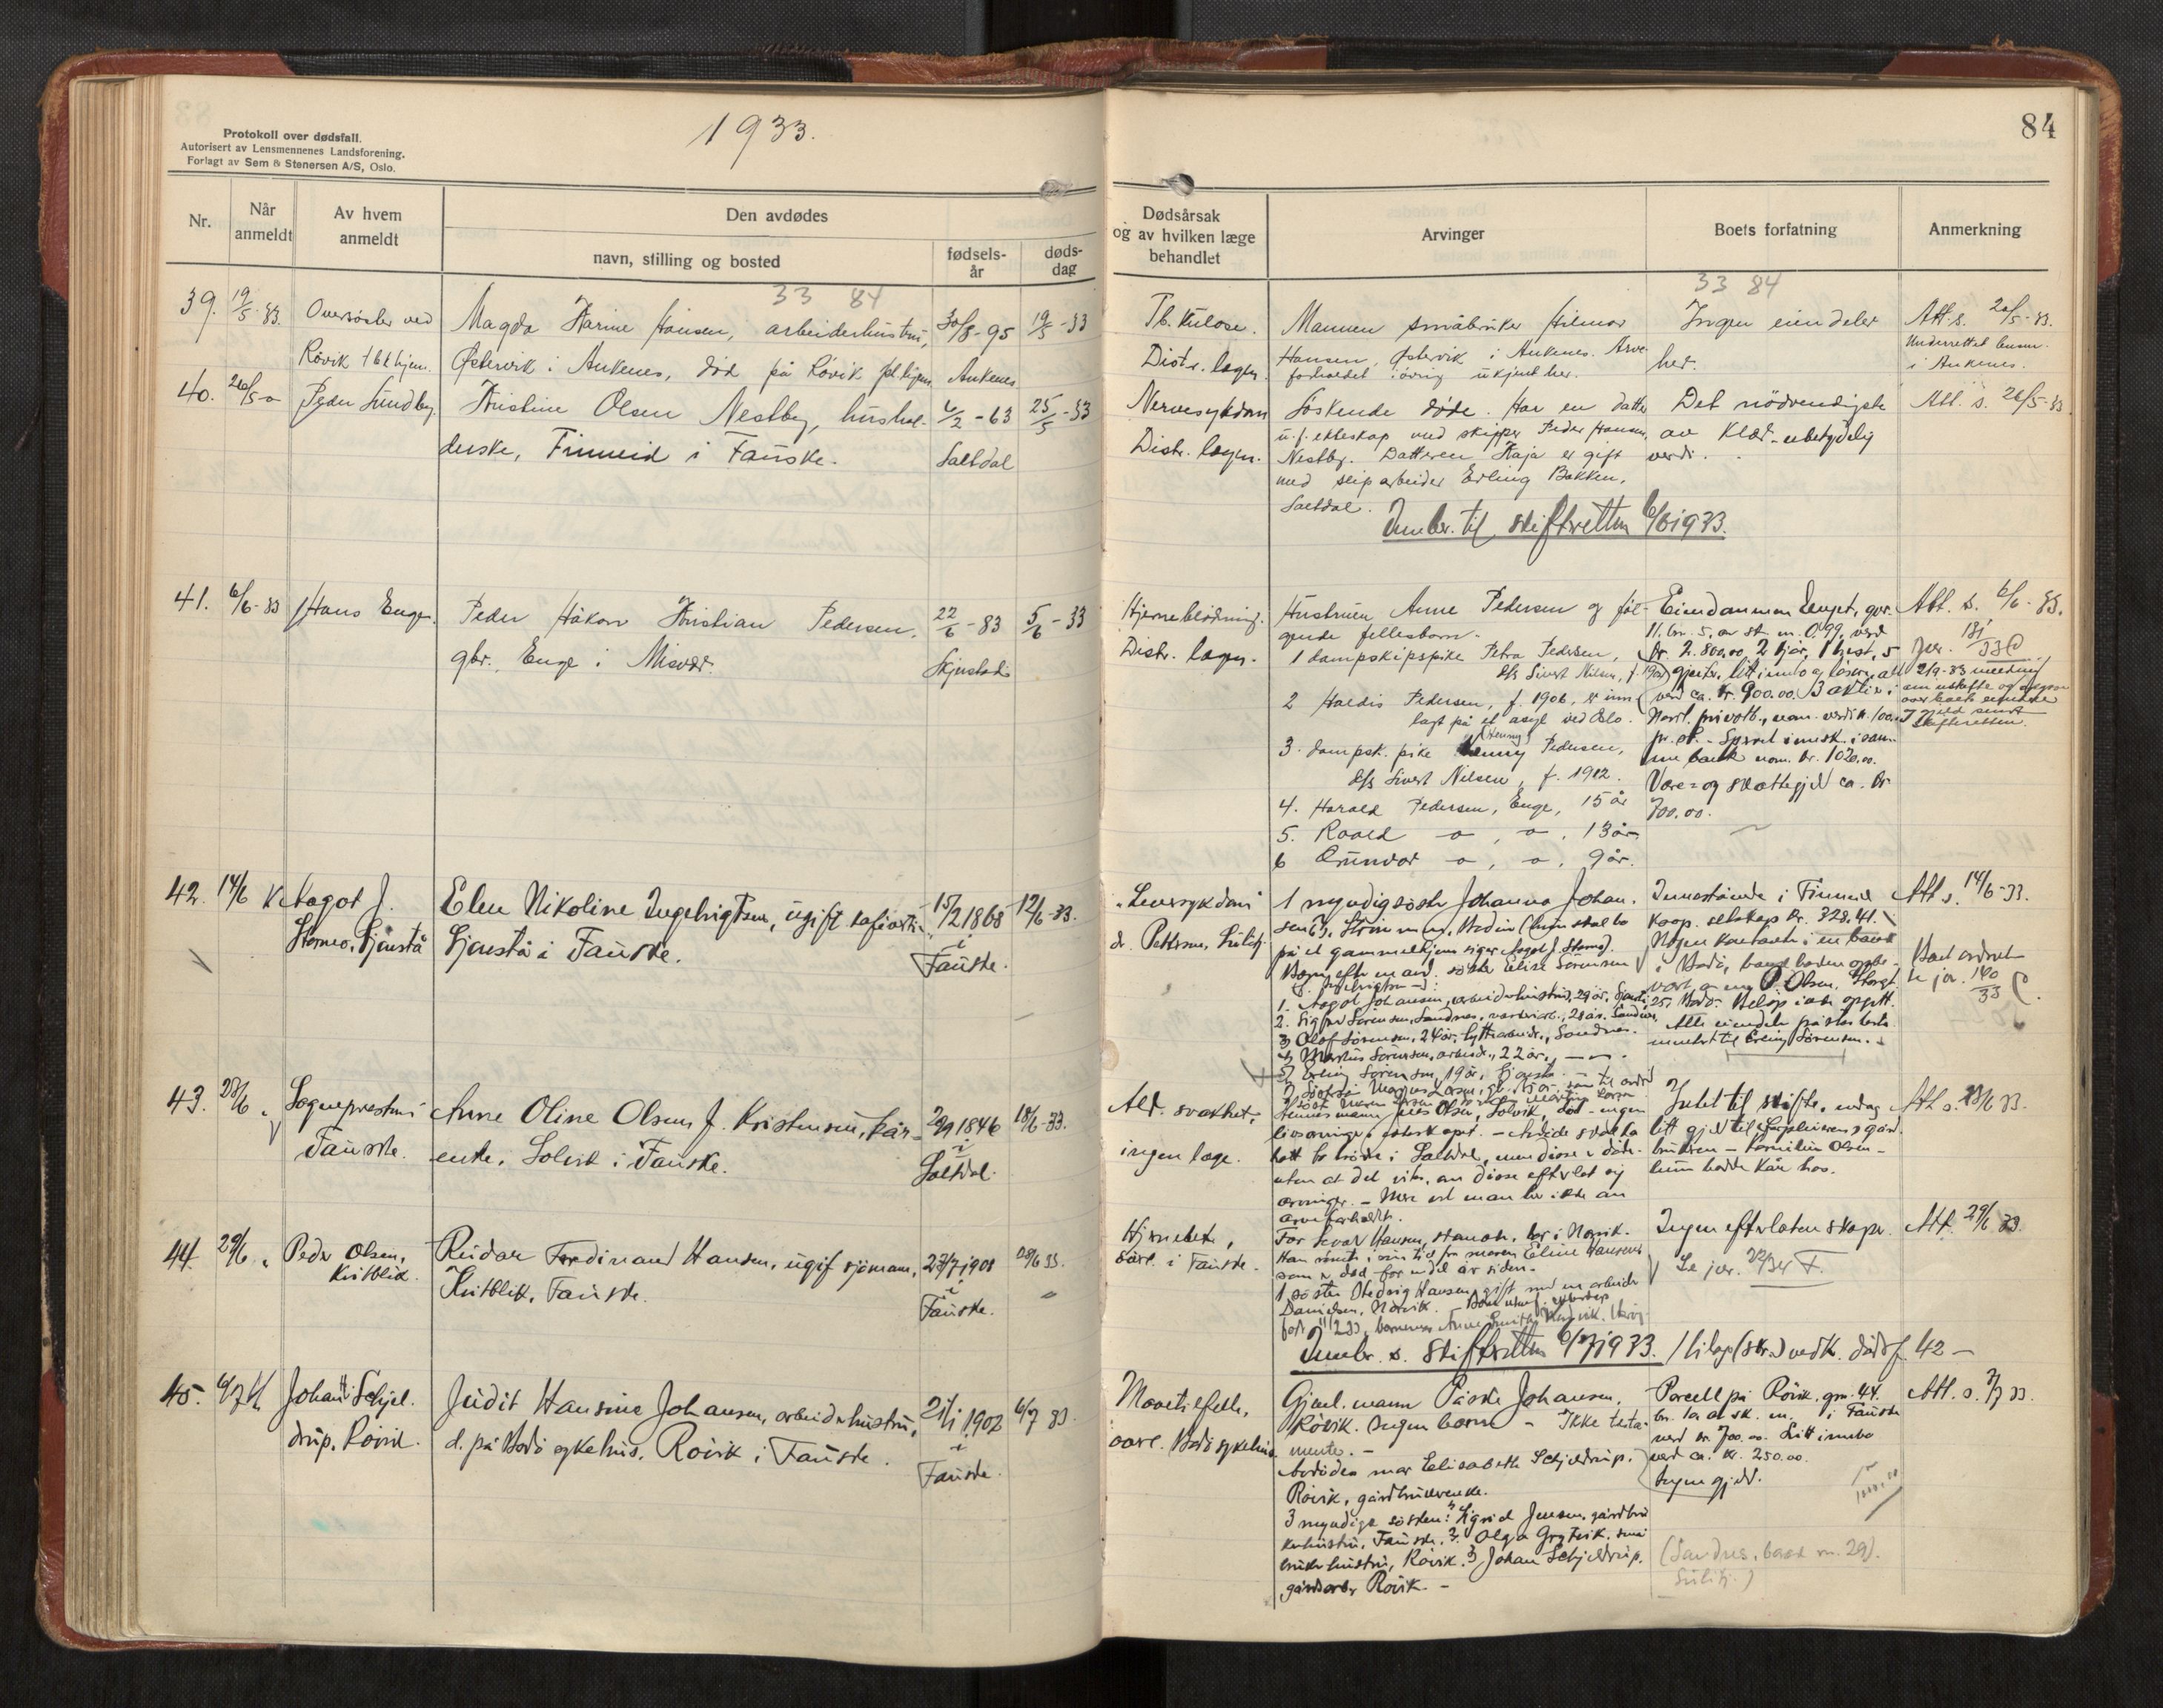 Protokoll over dødsfall.
Autorisert av Lensmennenes Landsforening.
Forlagt av Sem & Stenersen A/S, Oslo.
1933.
84
Nr.
Når
anmeldt
Av hvem
anmeldt
Den avdødes
navn, stilling og bosted
fødsels-
år
døds-
dag
Dødsårsak
og av hvilken læge
behandlet
Arvinger
Boets forfatning
Anmerkning
33 84
33 84
39. 19/5-33. Oversöster ved
Rövik tbk hjem.
Magda Karine Hansen, arbeiderhustru,
Östervik i Ankenes, död på Rövik
30/8-95
Ankenes
19/5-33
Tb.kulose.
Distr. lægen.
Mannen småbruker Hilmar
Hansen, Östervik i Ankenes. Arve-
forholdet iövrig ukjent her.
Ingen eiendeler
her.
Att. s. 20/5-33.
Underrettet lensm.
i Ankenes.
40. 26/5 - Peder Sundby.
Kristine Olsen Nestby, hushol-
derske, Finneid i Fauske.
6/2-63
Saltdal
25/5-33
Nervesykdom
Distr. lægen.
Söskende döde. Har en datter
u.f. ekteskap med skipper Peder Hansen,
Nestby. Datteren Kaja er gift
med sliparbeider Erling Bakken,
Saltdal.
Det nödvendigste
av klær - ubetydelig
verdi.
Att. s. 26/5-33.
Innber. til skifteretten 6/6 1933.
41. 6/6-33 Hans Enge.
Peder Håkon Kristian Pedersen,
gbr. Enge i Misvær.
22/6-83
Skjerstad
5/6-33
Hjerneblödning.
Distr. lægen.
Hustruen Anne Pedersen og föl-
gende fellesbarn.
1 dampskipspike Petra Pedersen,
d/s Sivert Nilsen, f. 1902
2 Haldis Pedersen, f. 1906, er inn-
lagt på et asyl ved Oslo.
3. dampsk. pike Henny Pedersen,
(Henny)
d/s Sivert Nilsen, f. 1912.
4. Harald Pedersen, Enge, 15 år
5. Roald -"-, -"-, 13 år
6 Gunvor -"-, -"-, 9 år.
Eiendommen Enget, gnr.
11. bn. 5, av sk. m. 0,99, verd
kr. 2.800,00, 2 kjör, 1 hest, 5
gjeiter, litt innbo og lösöre, alt
verd ca. kr. 900.00. 3 aktier i
Nordl. privatb., nom. verdi kr. 100.00
pr. st. - Spart innsk. i sam-
me bank nom. kr. 1020.00.
Vare- og skattegjeld ca. kr.
700.00.
Att. s. 6/6-33.
Jvr. 181/33
2/9-33 melding
om uskifte og opgave
over boets eiendeler
og gjeld sendt
skifteretten.
42. 14/6 Aagot J.
Stormo, Gjerstå
Elen Nikoline Ingebrigtsen, ugift kafévert-
Gjerstå i Fauske.
15/2 1868
i
Fauske.
12/6-33.
"Leversykdom"
dr. Pettersen, Sulitj.
1 myndig söster Johanna Johan-
sen
på et gammelhjem siger Aagot J. Stormo).
Barn efter en avd. söster Elise Sörensen
1. Aagot Johansen, arbeiderhustru, 29 år, Gjerstå
2. Sigfred Sörensen, Sandnes, 28 år, Sandnes
3) Olaf Sörensen, 24 år, hytterarbeider, Sandnes.
4) Markus Sörensen, arbeider, 22 år, -"-.
5) Erling Sörensen, 19 år, Gjerstå.
Innestående i Finneid
Koop. selskap kr. 328.41.
Nogen kontanter i en bank
i Bodö, bankboken opbe-
vart av Olsen, Storgt.
25, Bodö. Belöp ikke opgitt.
Alle eiendeler påståes testa-
mentert til Erling Sörensen.
Att s. 14/6-33.
Boet ordnet
se jvr. 140/33
43. 28/6 Sogneprestens i
Fauske.
Anne Oline Olsen f. Kristensen, kår-
enke, Solvik i Fauske.
20/9 1846
i
Saltdal.
18/6-33.
Ald. svakhet,
ingen læge.
Hennes mann Jens Olsen, Solvik, död - ingen
livsarvinger i ekteskapet. - Avdöde skal ha
hatt to brödre i Saltdal, men disse er döde
uten at det vites, om disse efterlot sig
arvinger. - Mere vet man her ikke om
arveforholdet.
Intet til skifte, endog
litt gjeld til
brukeren - Kornelius Olsen -
hun hadde kår hos.
Att s. 28/6 33.
44. 29/6 Peder Olsen,
Kvitblik.
Reidar Ferdinand Hansen, ugift sjömann,
Kvitblik, Fauske.
23/7 1901
i
Fauske.
28/6 33.
Hjernebet.,
overl. i Fauske.
Far Hansen, bor i Narvik.
Han römte i sin tid fra moren Eline Hansen
som er död for endel år siden.
1 söster Hedvig Hansen gift med en arbeider
Danielsen, Narvik.
Ingen efterlatenskaper.
Se jvr. 22/34 F.
Att. 29/6 33.
Innber. s. skifteretten 6/7 1933. 1 bilag (skr.) vedk. dödsf. 42 -
45. 6/7 Johan H. Schjel-
drup, Rövik.
Judit Hansine Johansen, arbeiderhustru,
d. på Bodö sykehus. Rövik i Fauske.
21/1 1902
i
Fauske.
6/7 33.
Mavetilfelle,
overl. Bodö sykehus.
Gjenl. mann Påske Johansen,
Rövik. Ingen barn - Ikke testa-
mente. -
Avdödes mor Elisabeth Schjeldrup,
Rövik, gårdbrukerenke.
3 myndige sösken: 1) Sigrid Jensen, gårdbru-
kerhustru, Fauske, 2. Olga Grytvik, små-
brukerhustru, Rövik. 3) Johan Schjeldrup,
gårdarb. Rövik. -
Parcell på Rövik, gnr. 44.
bn. 10 av sk. m. i Fauske
verd kr. 700.00. Litt innbo
verd ca. kr. 250.00.
Ingen gjeld.
(Sandnes, bnr. 29).
Sulitj.)
Att. s. 7/7 33.